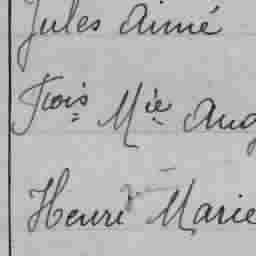 Jules Aimé
Fçois Mie Aug
Henri Marie